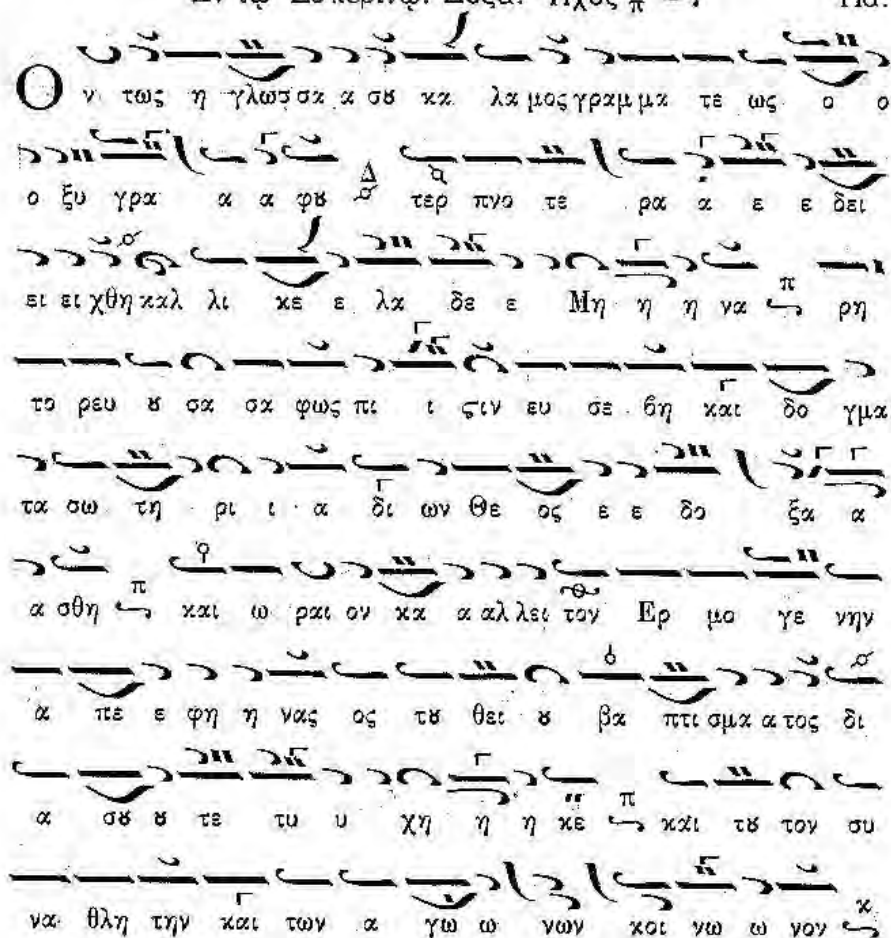 Ον τως η γλωσ σα α σȣ κα λα μος γραμ μα τε ως ο ο
ο ξυ γρα α α φȣ Δ τερ πνο τε ρα α ε ε δει
ει ει χθη καλ λι κε ε λα δε ε Μη η η να π ρη
το ρευ ȣ σα σα φως πι ι ϛιν ευ σε βη και δο γμα
τα σω τη ρι ι α δι ων Θε ος ε ε δο ξα α
α σθη π και ω ραι ον κα α αλ λει τον Ερ μο γε νην
α πε ε φη η νας ος τȣ θει ȣ βα πτι σμα α τος δι
α σȣ ȣ τε τυ υ χη η η κε π και τȣ τον συ
να θλη την και των α γω ω νων κοι νω ω νον κ